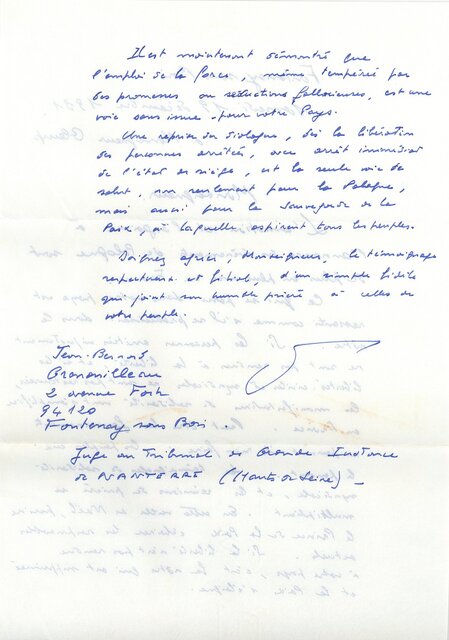 Il est maintenant démontré que
l'emploi de la force, même tempérée par
des promesses ou séductions fallacieuses, est une
voie sans issue pour votre Pays.
Une reprise du dialogue, dès la libération
des personnes arrêtées, avec arrêt immédiat
de l'état de siège, est la seule voie de
salut, non seulement pour la Pologne,
mais aussi pour la sauvegarde de la
Paix, à laquelle aspirent tous les peuples.
Daignez agréer, Monseigneur, le témoignage
respectueux et filial, d'un simple fidèle
qui joint son humble prière à celles de
votre peuple.
Jean-Bernard
2 avenue Foch
94120
Fontenay sous Bois.
Juge au Tribunal de Grande Instance
de NANTERRE (Hauts de Seine) _